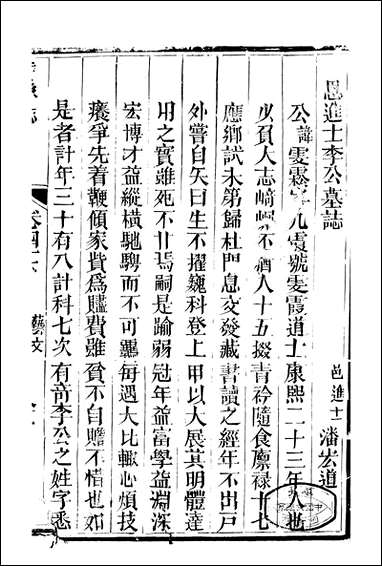 恩進士李公墓誌
邑進士潘宏道
公諱雯霖字九霞號雯霞道士康熙二十三年人也
少負大志崎嶇不猶人十五掇青衿隨食廩祿十七
應鄉試未第歸杜門息交發藏書讀之經年不出戶
外嘗自矢曰生不擢巍科登上甲以大展其明體達
用之實雖死不甘焉嗣是踰弱冠年益富學益淵深
宏博才益縱橫馳騁而不可羈每遇大比輒心煩技
癢爭先着鞭傾家貲為贐費雖貧不自贍不惜也如
是者計年三十有八計科七次有奇李公之姓字悉
卷四十六
藝文